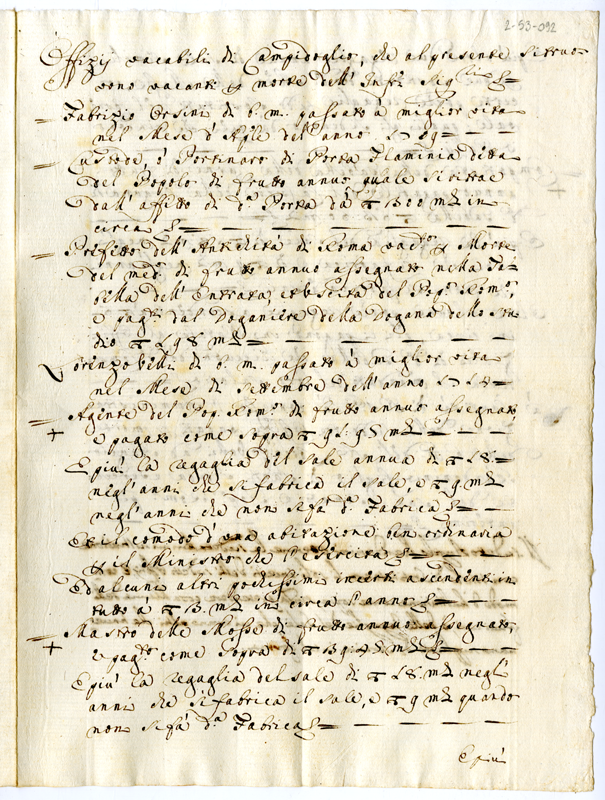 2-53-092
Offizij vacabili di Campidoglio, che al presente si truo-
vono vacanti p morte dell' Infri Sig.ri
Fabrizio Orsini di b. m. passato à miglior vita
nel Mese d'Aple del anno
Custode, ò Portinaro di Porta Flaminia detta
del Popolo di frutto annuo quale si ritrae
dall' affitto di d.a Porta da 1300 m.ta in
circa
Prefetto dell' Antichità di Roma vac.to p Morte
del med.o di frutto annuo assegnato nella Ta-
bella dell' Entrata, et Uscita del Pop.o Rom.o,
e pag.to dal Doganiere della Dogana dello Stu-
dio
Lorenzo di b. m. passato à miglior vita
nel Mese di Settembre dell' anno
Agente del Pop. Rom.o di frutto annuo assegnato,
e pagato come sopra
E più la regaglia del sale annua di
negl' anni che si fabrica il sale, e 9 m.ta
negl' anni che non si fà d.a Fabrica
Et il comodo d'una abitazione ben ordinaria
p il Ministro che l'esercita
Ed alcuni altri pochissimi incerti ascendenti in
tutto à 13. m.ta in circa l'anno
Mastro delle Mosse di frutto annuo assegnato,
e pag.to come sopra di
E più la regaglia del sale di m.ta negl'
anni che si fabrica il sale, e 9 m.ta quando
non si fà d.a Fabrica
E più